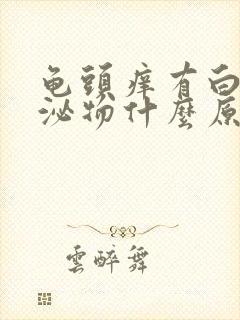 龟頭痒有白
泌物什麼原
雲醉舞